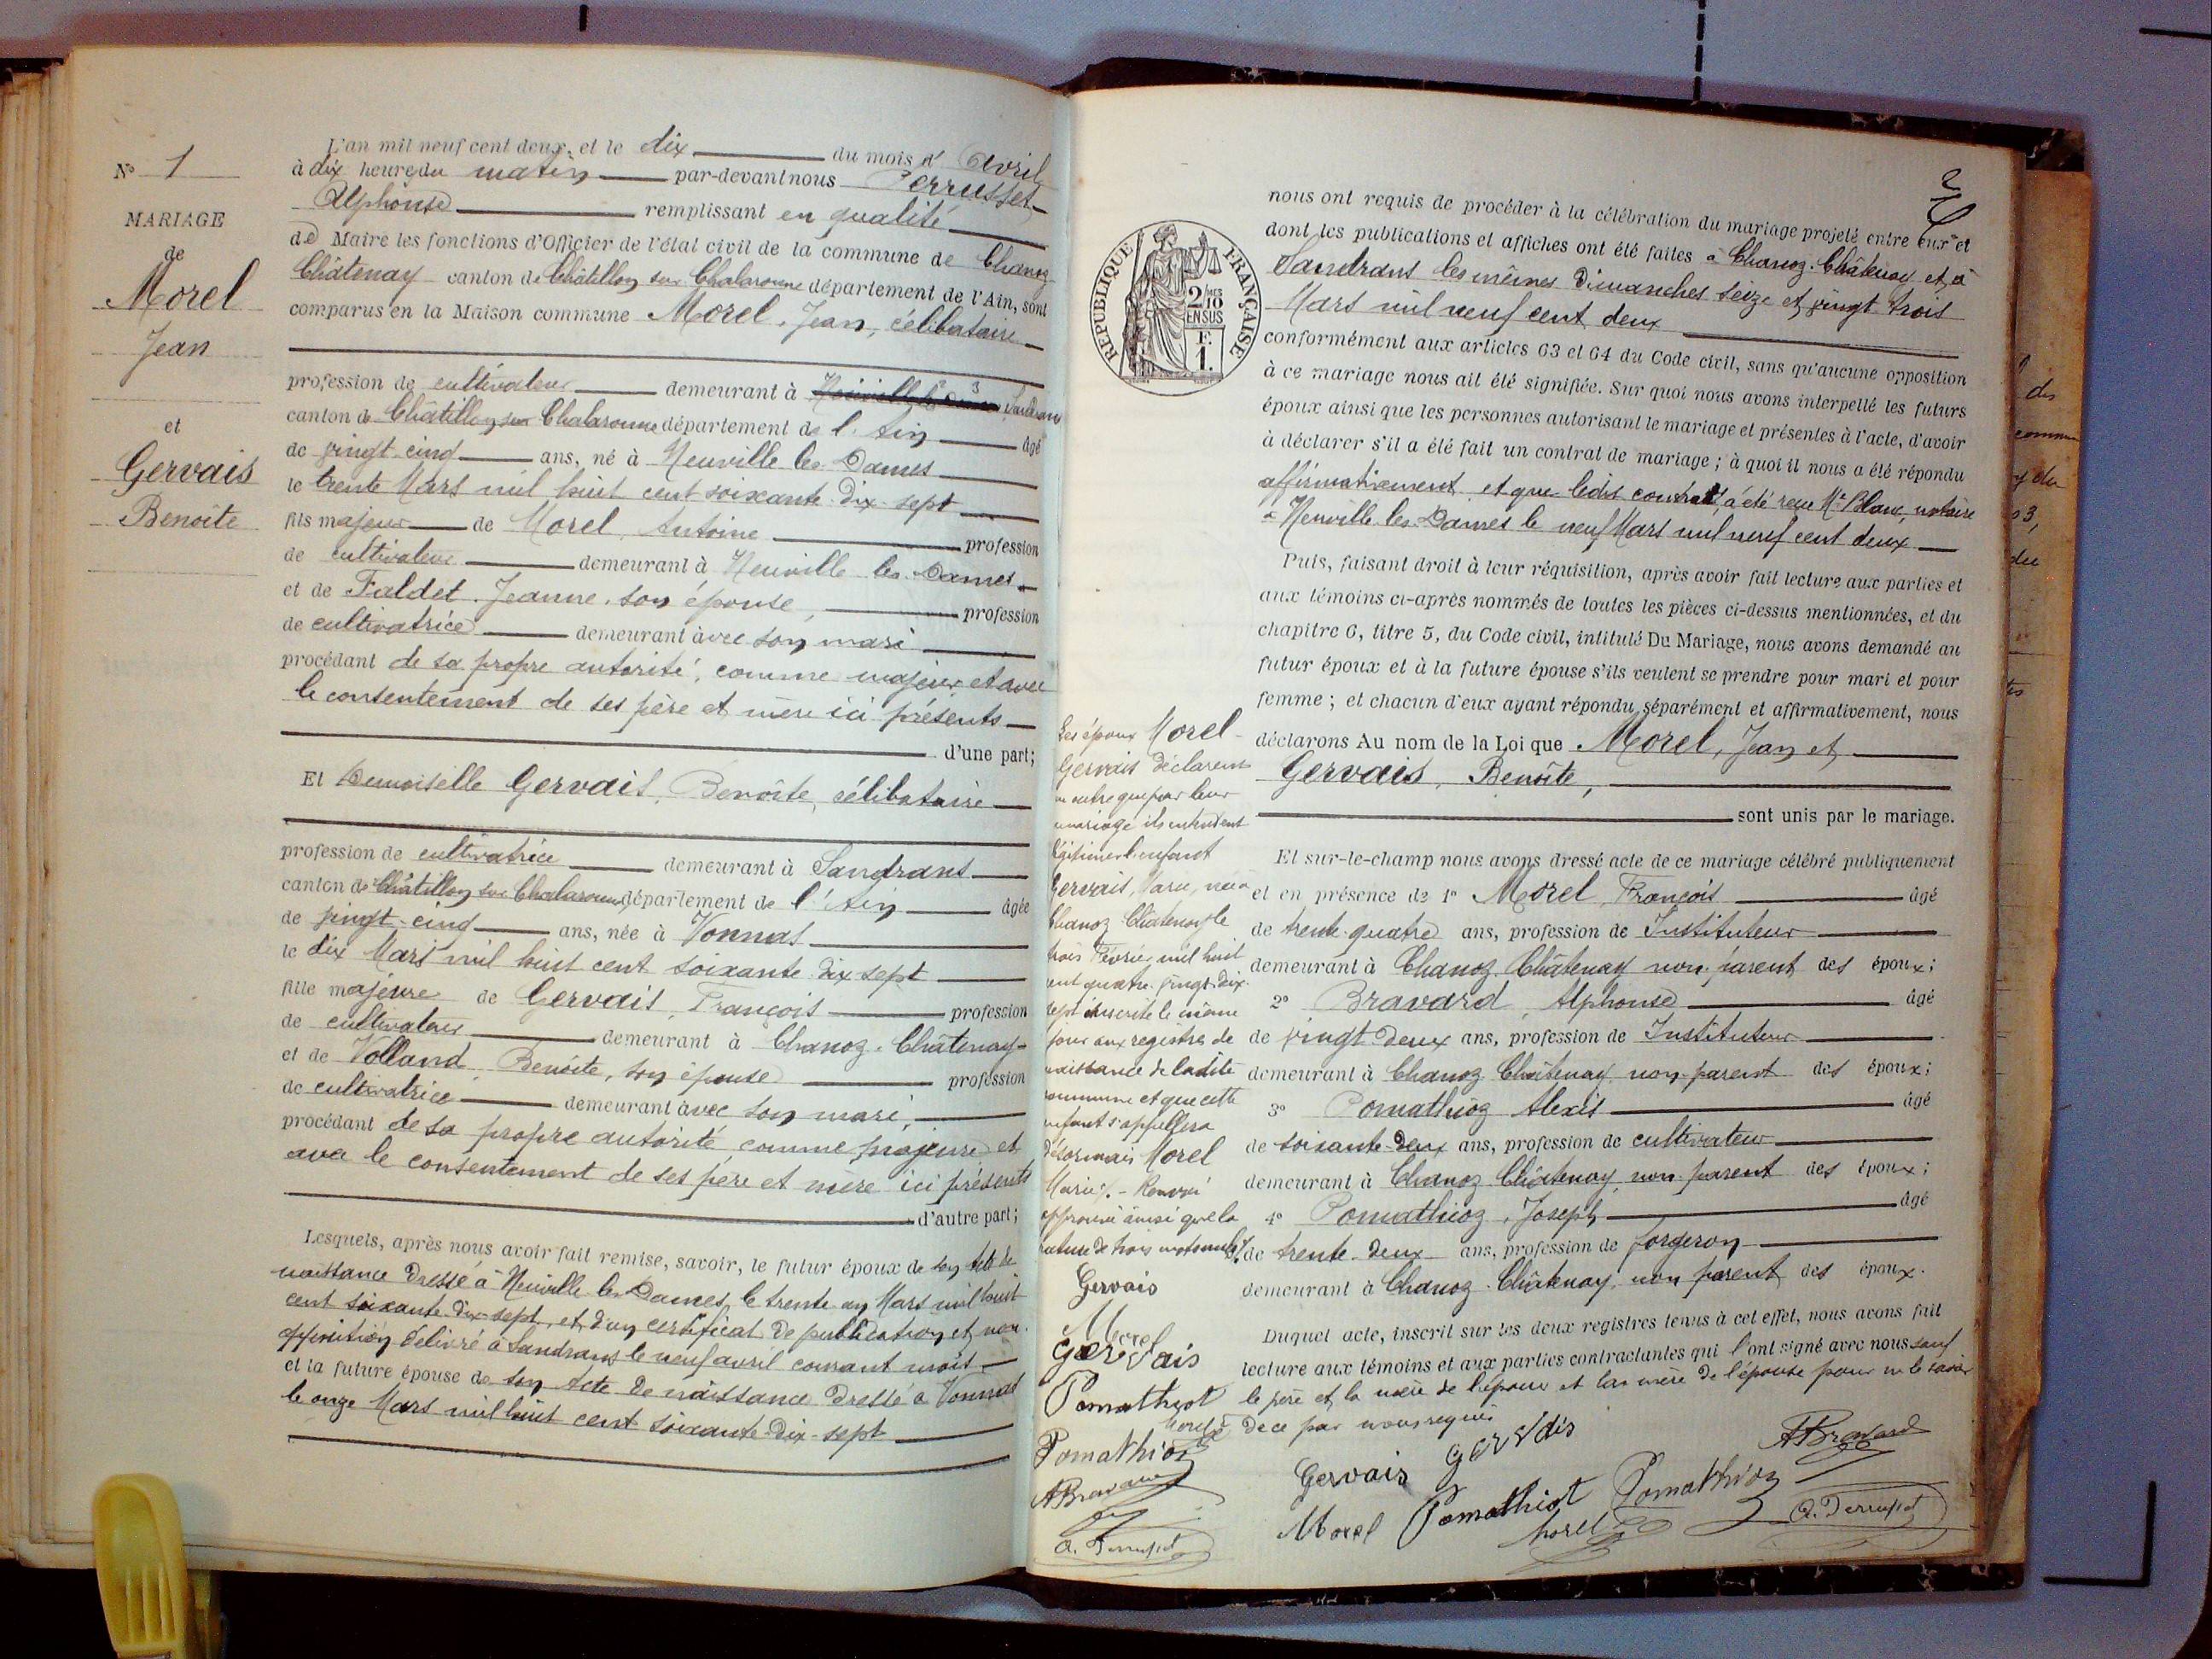 N° 1
MARIAGE
de
Morel
Jean
et
Gervais
Benoîte
L'an mil neuf cent deux, et le dix du mois d'Avril
à dix heures du matin par-devant nous Perrusset
Alphonse remplissant en qualité
de Maire les fonctions d'Officier de l'état civil de la commune de Chanoz
Châtenay canton de Châtillon sur Chalaronne département de l'Ain, sont
comparus en la Maison commune Morel, Jean, célibataire
profession de cultivateur demeurant à Sandrans
canton de Châtillon sur Chalaronne département de l'Ain âgé
de vingt-cinq ans, né à Neuville les Dames
le trente Mars mil huit cent soixante-dix-sept
fils majeur de Morel, Antoine profession
de cultivateur demeurant à Neuville les Dames
et de Faldet, Jeanne, son épouse, profession
de cultivatrice demeurant avec son mari
procédant de sa propre autorité, comme majeur et avec
le consentement de ses père et mère ici présents
d'une part;
Et Demoiselle Gervais, Benoîte, célibataire
profession de cultivatrice demeurant à Sandrans
canton de Châtillon sur Chalaronne département de l'Ain âgée
de vingt-cinq ans, née à Vonnas
le dix Mars mil huit cent soixante-dix-sept
fille majeure de Gervais, François profession
de cultivateur demeurant à Chanoz-Châtenay
et de Volland, Benoîte, son épouse profession
de cultivatrice demeurant avec son mari,
procédant de sa propre autorité comme majeure et
avec le consentement de ses père et mère ici présents
d'autre part;
Lesquels, après nous avoir fait remise, savoir, le futur époux de son acte de
naissance dressé à Neuville les Dames, le trente un Mars mil huit
cent soixante-dix-sept, et d'un certificat de publication et non
opposition délivré à Sandrans le neuf avril courant mois
et la future épouse de son acte de naissance dressé à Vonnas
le onze Mars mil huit cent soixante-dix-sept
2
REPUBLIQUE FRANÇAISE
2/10 EN SUS
F.
1.
nous ont requis de procéder à la célébration du mariage projeté entre eux et
dont les publications et affiches ont été faites à Chanoz-Châtenay et à
Sandrans les mêmes Dimanches seize et vingt trois
Mars mil neuf cent deux
conformément aux articles 63 et 64 du Code civil, sans qu'aucune opposition
à ce mariage nous ait été signifiée. Sur quoi nous avons interpellé les futurs
époux ainsi que les personnes autorisant le mariage et présentes à l'acte, d'avoir
à déclarer s'il a été fait un contrat de mariage ; à quoi il nous a été répondu
affirmativement et que ledit contrat a été reçu Me Blanc, notaire
à Neuville les Dames le neuf Mars mil neuf cent deux
Puis, faisant droit à leur réquisition, après avoir fait lecture aux parties et
aux témoins ci-après nommés de toutes les pièces ci-dessus mentionnées, et du
chapitre 6, titre 5, du Code civil, intitulé Du Mariage, nous avons demandé au
futur époux et à la future épouse s'ils veulent se prendre pour mari et pour
femme ; et chacun d'eux ayant répondu séparément et affirmativement, nous
déclarons Au nom de la Loi que Morel, Jean et
Gervais, Benoîte,
sont unis par le mariage.
Et sur-le-champ nous avons dressé acte de ce mariage célébré publiquement
et en présence de 1° Morel, François âgé
de trente-quatre ans, profession de Instituteur
demeurant à Chanoz Châtenay non parent des époux ;
2° Bravard, Alphonse âgé
de vingt deux ans, profession de Instituteur
demeurant à Chanoz Châtenay non parent des époux ;
3° Pomathioz Alexis âgé
de soixante-deux ans, profession de cultivateur
demeurant à Chanoz Châtenay, non parent des époux ;
4° Pomathioz, Joseph âgé
de trente-deux ans, profession de forgeron
demeurant à Chanoz-Châtenay, non parent des époux.
Duquel acte, inscrit sur les deux registres tenus à cet effet, nous avons fait
lecture aux témoins et aux parties contractantes qui l'ont signé avec nous sauf
le père et la mère de l'époux et la mère de l'épouse pour ne le savoir
de ce par nous requis
Gervais Gervais ABravard
Morel Pomathiot Pomathioz
Morel A. Perrusset
Les époux Morel-
Gervais déclarent
en outre que par leur
mariage ils entendent
légitimer l'enfant
Gervais, Marie, née à
Chanoz-Châtenay le
trois Février mil huit
cent quatre-vingt-dix-
sept inscrite le même
jour aux registres de
naissance de ladite
commune et que cette
enfant s'appellera
désormais Morel
Marie./. - Renvoi
approuvé ainsi que la
rature de trois mots nuls./.
Gervais
Morel
Gervais
Pomathiot
Morel
Pomathioz
ABravard
A. Perrusset